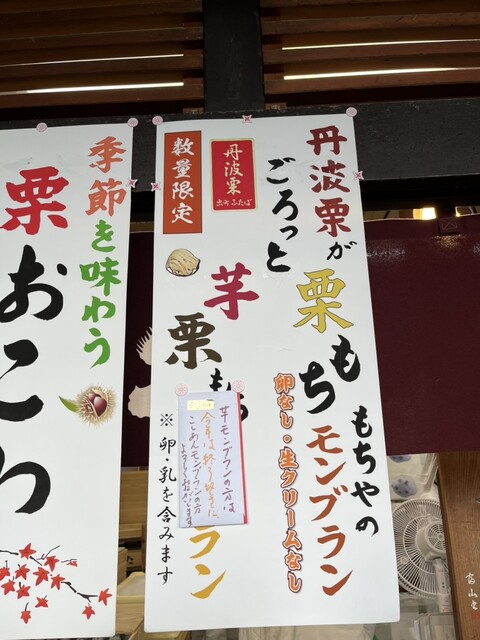 丹波栗が
ごろっと
もちやの
栗もちモンブラン
卵なし・生クリームなし
丹波栗
出町ふたば
数量限定
芋
栗も
ラン
※卵・乳を含みます
芋モンブランの方は
今年は終了しました
こしあんモンブランの方
よろしくお願いします
季節を味わう
栗おこわ